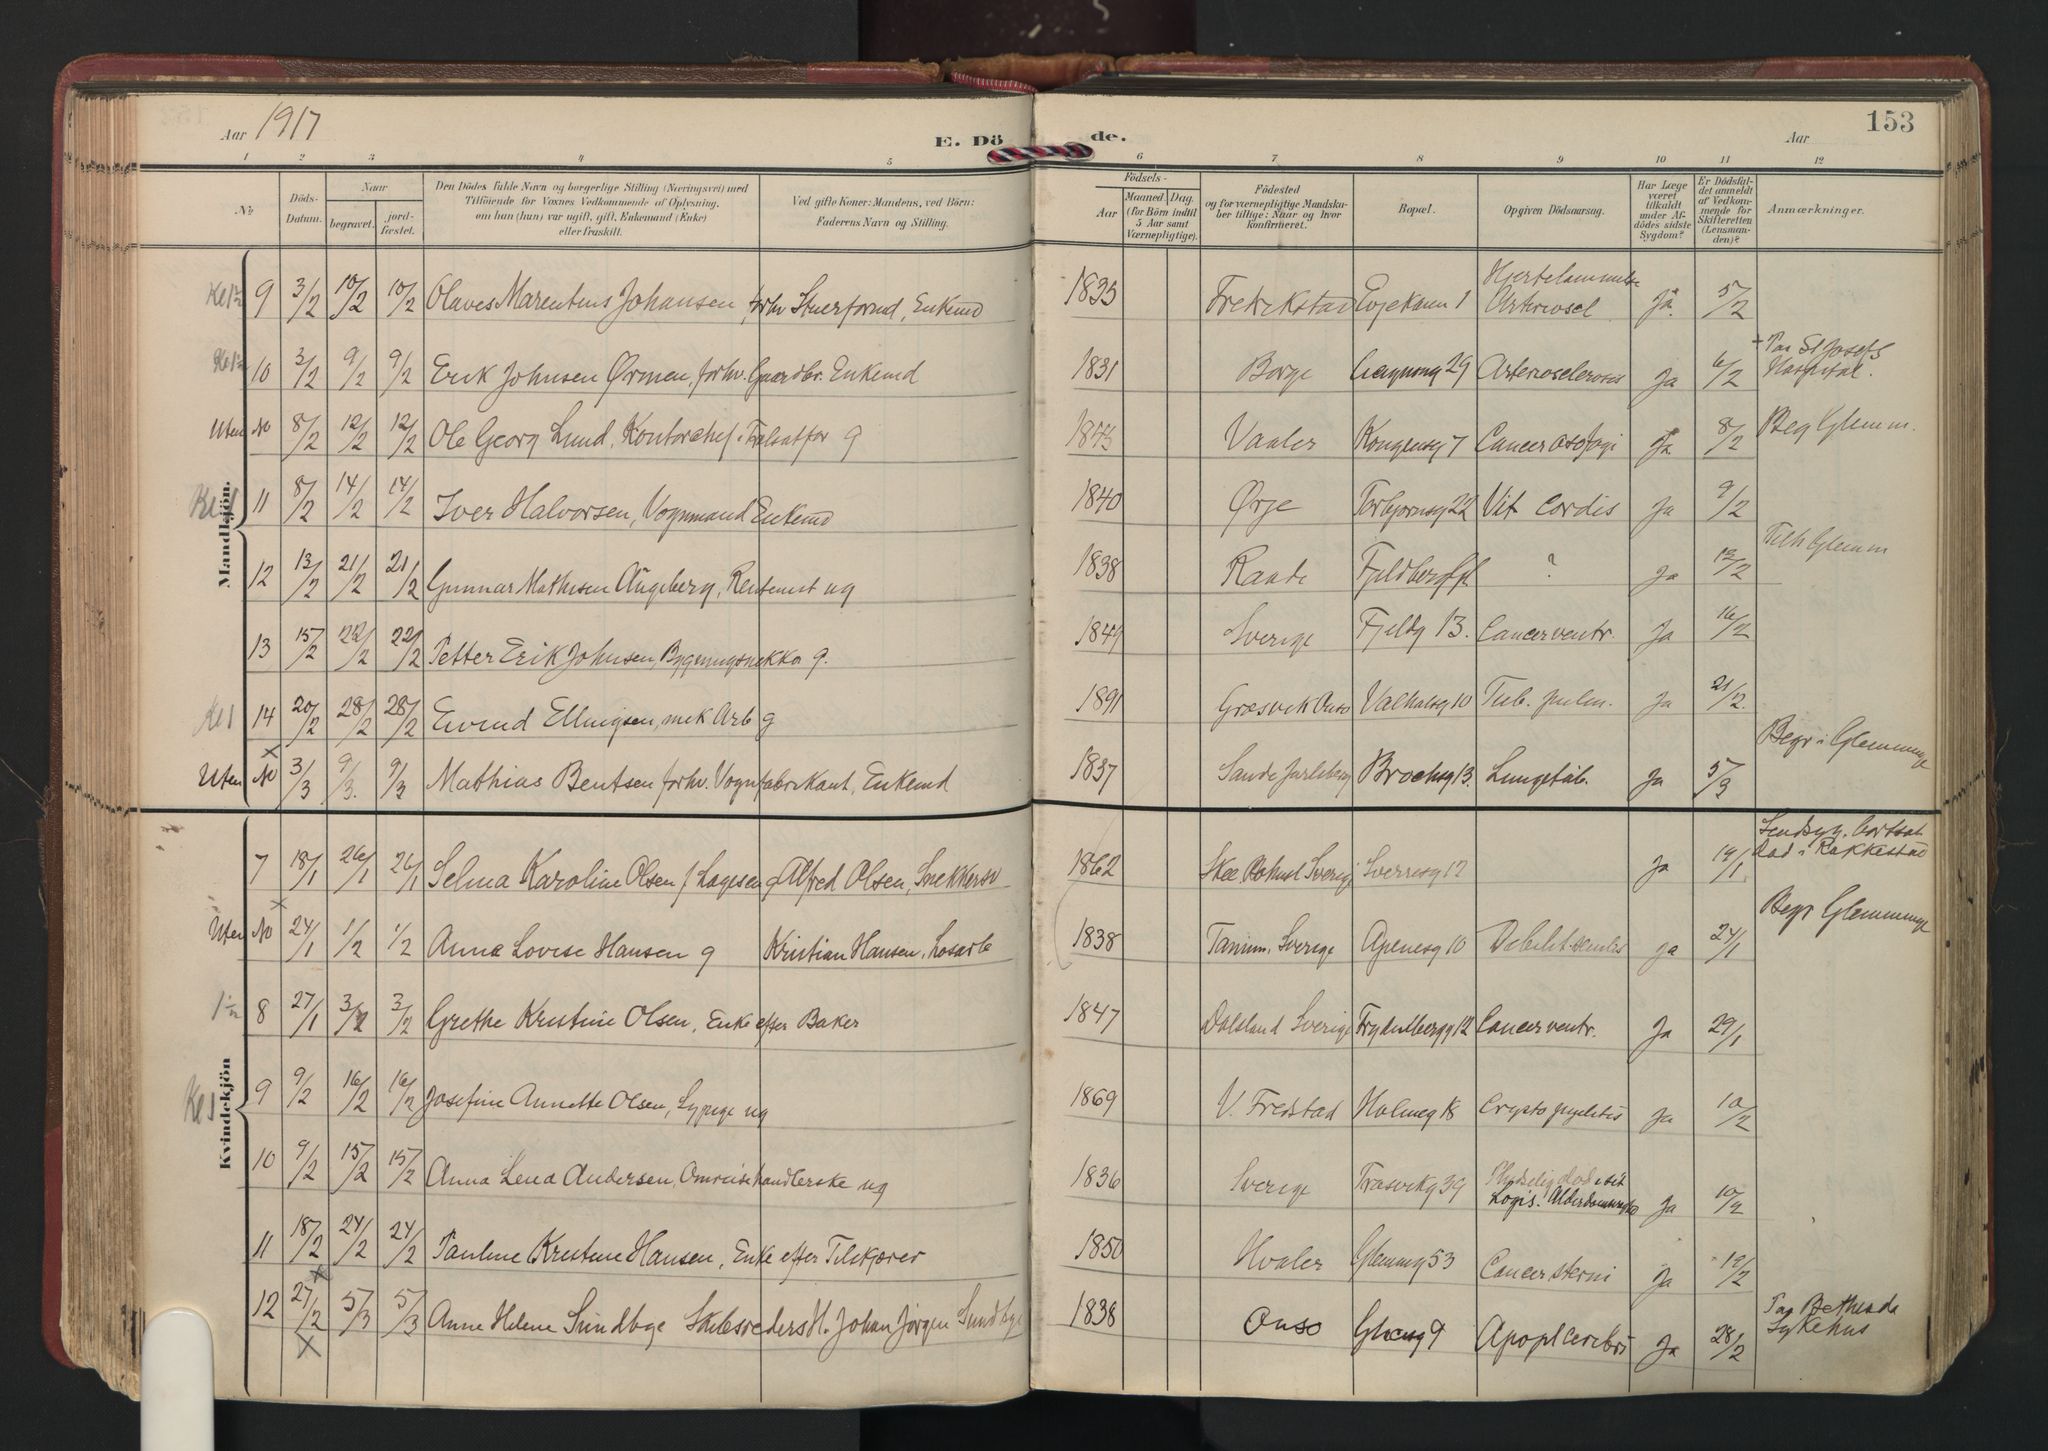 Aar 1917
E. Dö de.
Aar
153
1 2 3 4 5 6 7 8 9 10 11 12
№
Döds-Datum.
Naar
begravet.
jord-fæstet.
Den Dödes fulde Navn og borgerlige Stilling (Næringsvei) med
Tilföiende for Voxnes Vedkommende af Oplysning,
om han (hun) var ugift, gift, Enkemand (Enke)
eller fraskilt.
Ved gifte Koner: Mandens, ved Börn:
Faderens Navn og Stilling.
Födsels-
Aar
Maaned. Dag.
(for Börn indtil
5 Aar samt
Værnepligtige).
Födested
og for værnepligtige Mandska-
ber tillige: Naar og hvor
konfirmeret.
Bopæl.
Opgiven Dödsaarsag.
Har Læge
været
tilkaldt
under Af-
dödes sidste
Sygdom?
Er Dödsfal-
det anmeldt
af Vedkom-
mende for
Skifteretten
(Lensman-
den)?
Anmærkninger.
Mandkjön.
9 3/2 10/2 10/2 Olaves Marentius Johansen, forhv Stuerformd, Enkemd 1835 Fredrikstad 1 Arterioscl Ja. 5/2
10 3/2 9/2 9/2 Erik Johnsen Ørmen, forhv. Gaardbr. Enkemd 1831 Borge 29 Arteriosclerosis Ja 6/2 + Paa St Josefs Hospital.
Uten № 8/2 12/2 12/2 Ole Georg Lund, Kontorchef i g 1843 Vaaler Kongensg 7 Cancer Ja 8/2 Beg Glemm.
Kl 1 11 8/2 14/2 14/2 Iver Halvorsen, Vognmand Enkemd 1840 Ørje Torbjornsg 22 Vit Cordis Ja 9/2
12 13/2 21/2 21/2 Gunnar Mathisen Augeberg, Rentenist ug 1838 Raade Fjeldbergpl ? Ja 13/2 Tilh Glemm
13 15/2 22/2 22/2 Petter Erik Johnsen, Bygningssnekker g. 1849 Sverige Fjeldg 13. Cancer ventr. Ja 16/2
Kl 1 14 20/2 28/2 28/2 Eivind Ellingsen, mek Arb g 1891 Græsvik Onsø Valhalsg 10 Tub. pulm. Ja 21/2.
Uten № 3/3 9/3. 9/3 Mathias Bentsen forhv. Vognfabrikant, Enkemd 1837 Sande Jarlsberg Brochsg 13. Lungetub. Ja 5/3 Begr i Glemminge
Kvindekjön
7 18/1 26/1 26/1 Selma Karoline Olsen f Lagesen g Alfred Olsen, Snekkersv 1862 Skee Bohusl Sverige Sverresg 12 Ja 19/1 Sindsyg. bortsat Död i Rakkestad
Uten № 24/1 1/2 1/2 Anna Lovise Hansen g Kristian Hansen, Losarb 1838 Tanum, Sverige Apenesg 10 Debilit. senilis ja 24/1 Begr Glemminge
8 27/1 3/2 3/2 Grethe Kristine Olsen, Enke efter Baker 1847 Dalsland Sverige Frydenbergg 12 Cancer ventr. Ja 29/1
Kl 1 9 9/2 16/2 16/2 Josefine Annette Olsen, Sypige ug 1869 V. Fredstad Holmeg 18 Crypto pyelitis Ja 10/2
10 9/2 15/2 15/2 Anna Lena Andersen, Omreisehandlerske ug 1836 Sverige Trosvikg 39 Plydselig død i sit Logis. Ja 10/2
11 18/2 24/2 24/2 Pauline Kristine Hansen, Enke efter Tilskjærer 1850 Hvaler Glemmg 53 Cancer sterni Ja 19/2
12 27/2 5/3 5/3 Anne Helene Sundbye H. Johan Jørgen Sundbye 1838 Onsø 9 Apopl cerebri Ja 28/2 Paa Bethesda Sykehus